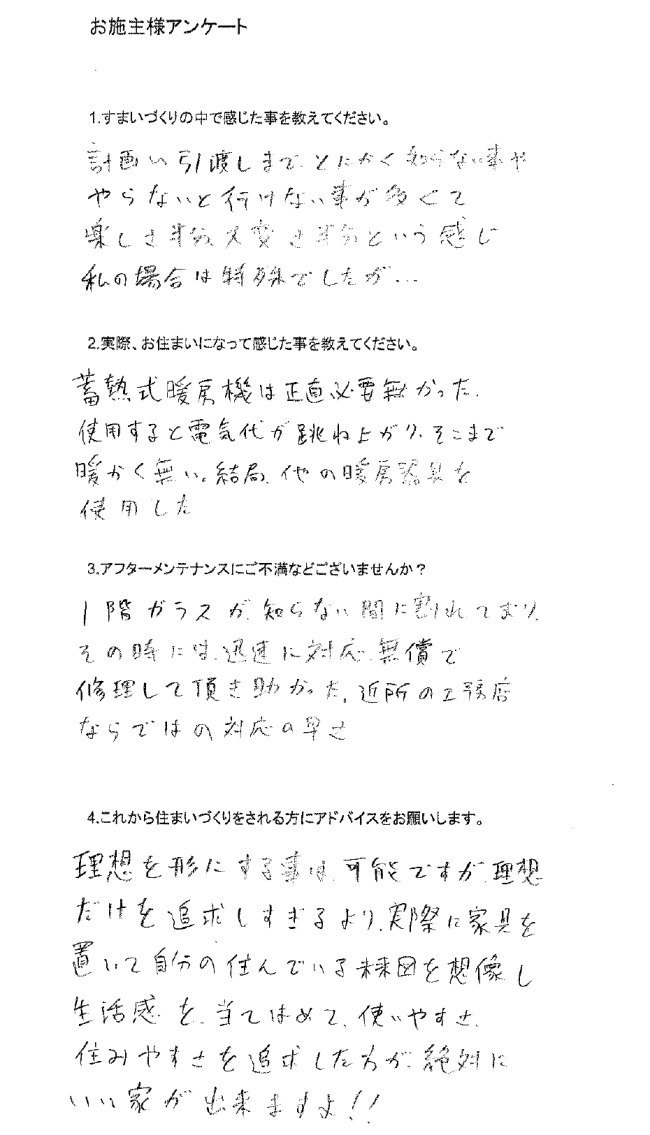 お施主様アンケート
1.すまいづくりの中で感じた事を教えてください。
計画〜引渡しまで、とにかく知らない事や
やらないと行けない事が多くて
楽しさ半分大変さ半分という感じ
私の場合は特殊でしたが…
2.実際、お住まいになって感じた事を教えてください。
蓄熱式暖房機は正直必要無かった。
使用すると電気代が跳ね上がり、そこまで
暖かく無い。結局、他の暖房器具を
使用した
3.アフターメンテナンスにご不満などございませんか？
1階ガラスが、知らない間に割れており、
その時には、迅速に対応、無償で
修理して頂き助かった。近所の工務店
ならではの、対応の早さ
4.これから住まいづくりをされる方にアドバイスをお願いします。
理想を形にする事は、可能ですが、理想
だけを追求しすぎるより、実際に家具を
置いて自分の住んでいる未来図を想像し
生活感を、当てはめて、使いやすさ、
住みやすさを追求した方が、絶対に
いい家が出来ますよ!!